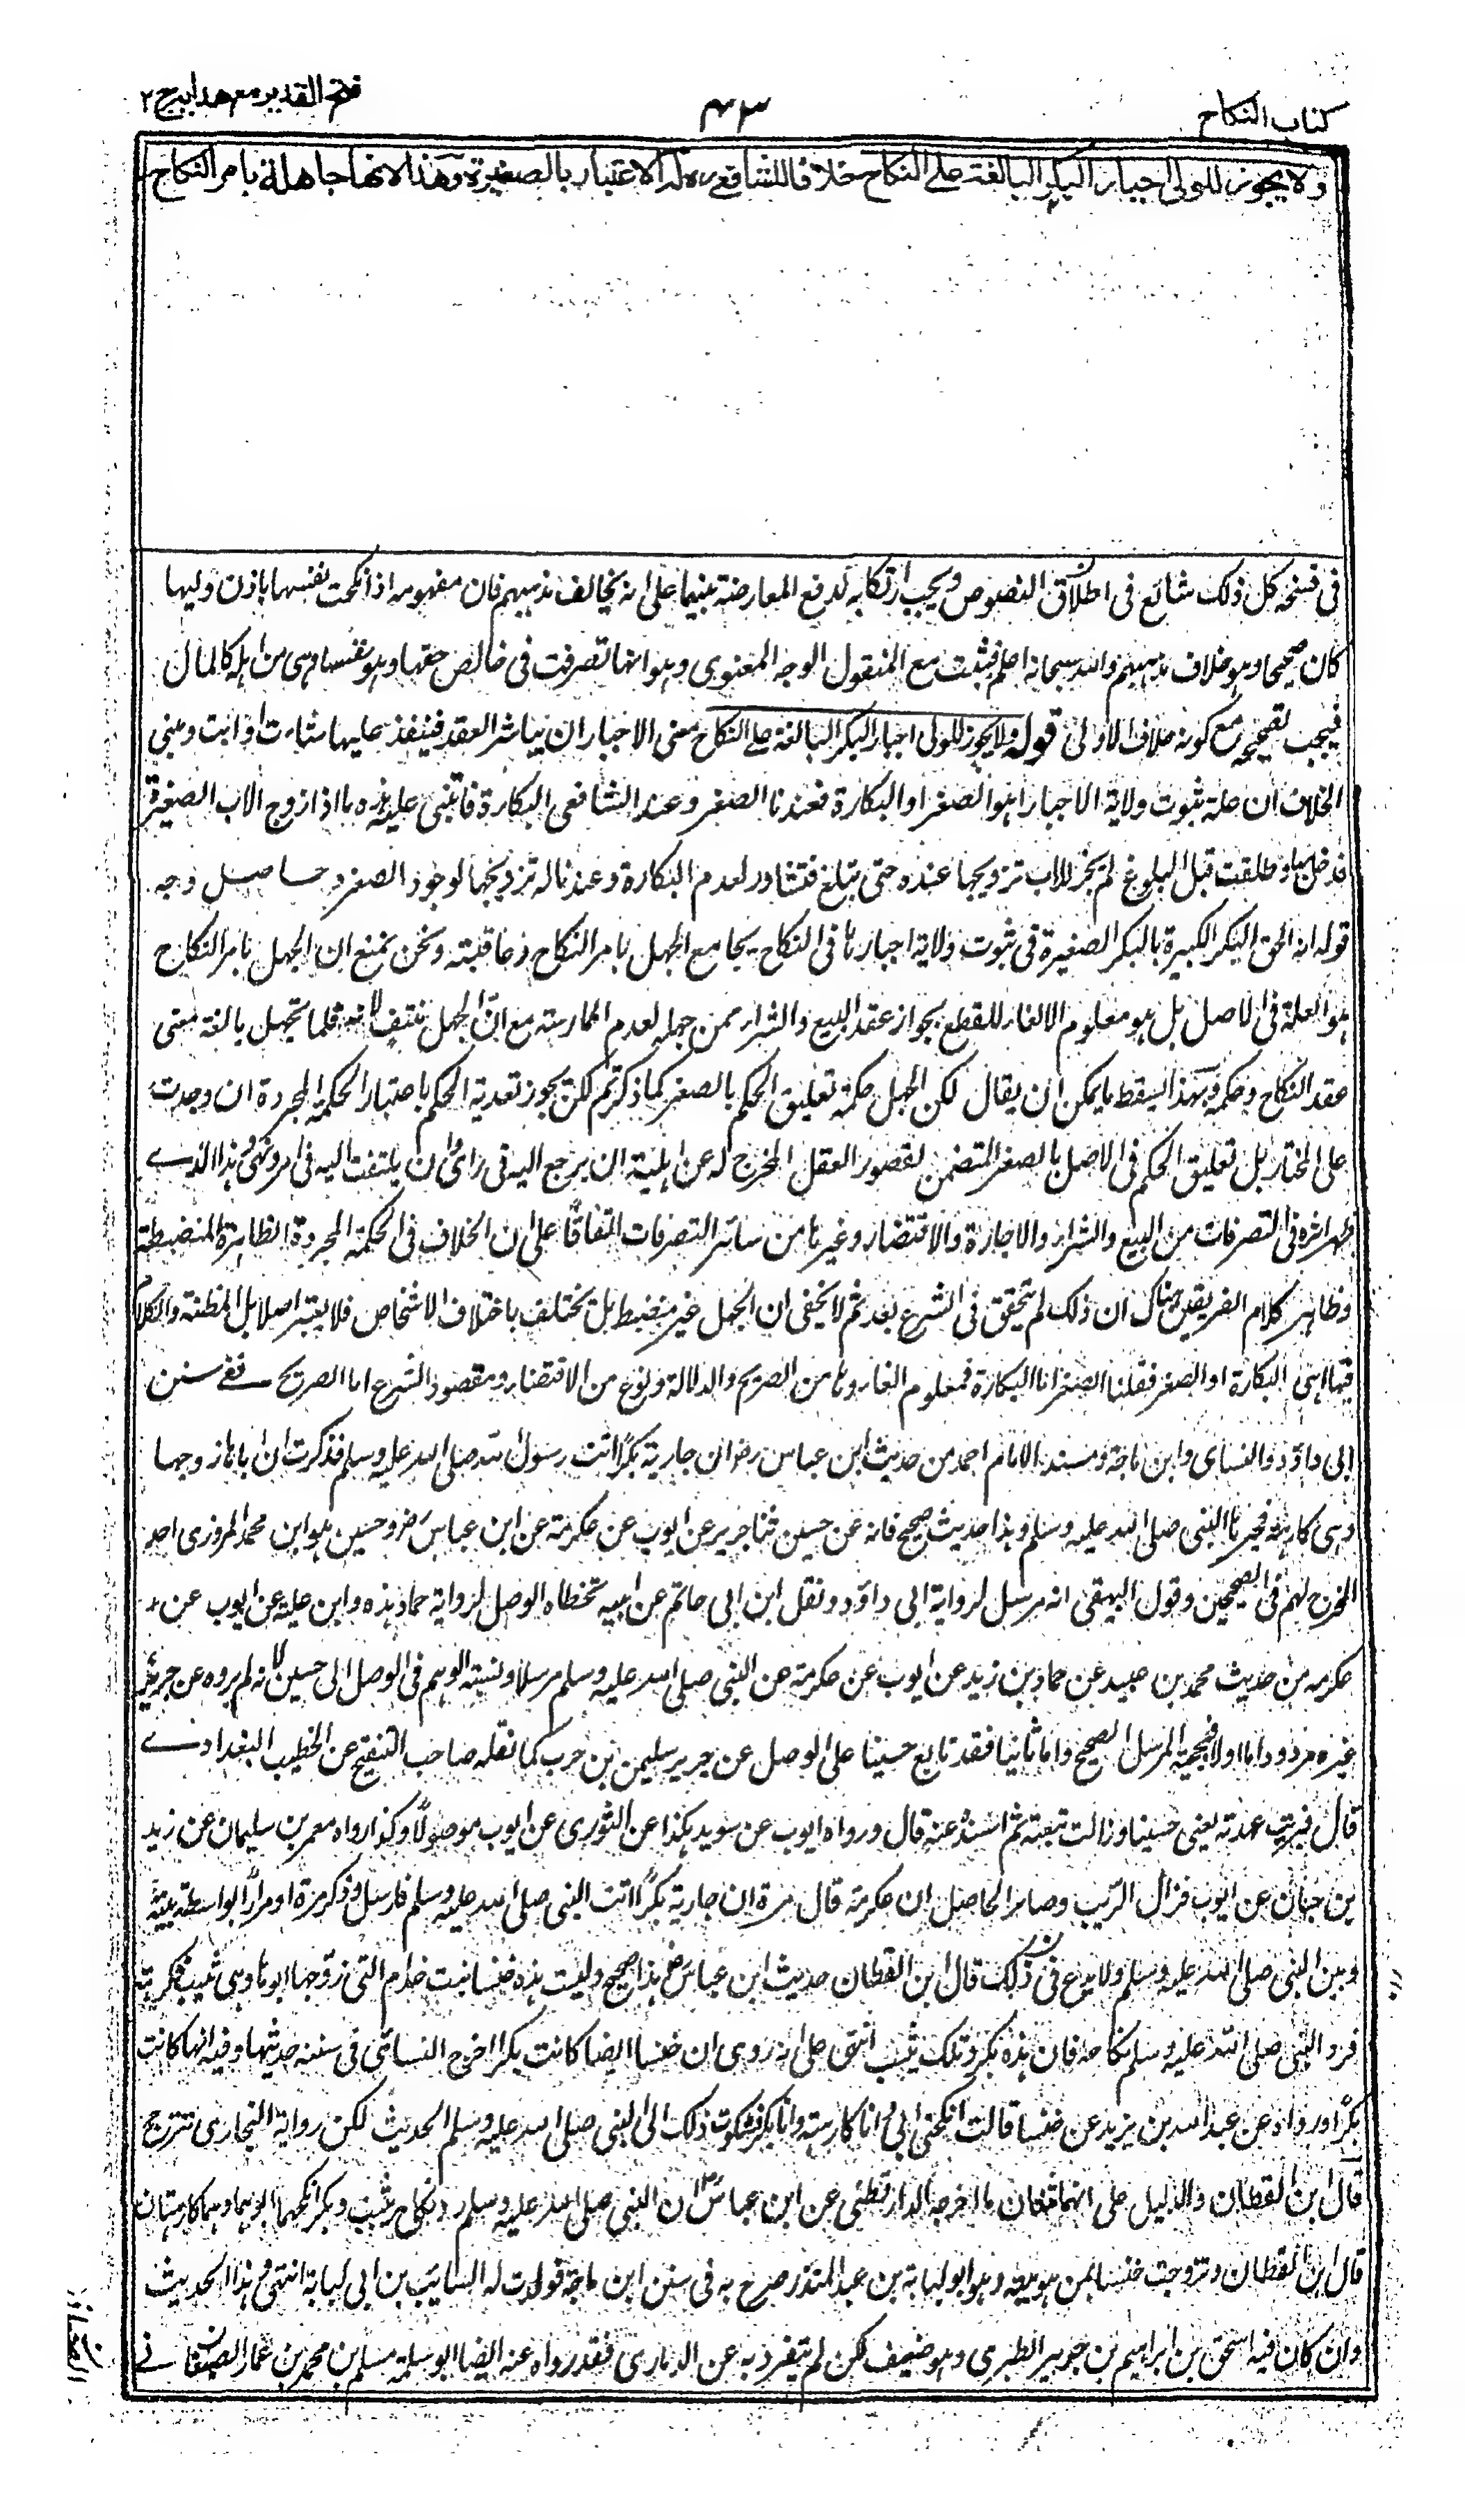 كتاب النكاح
٤٣
فتح القدير مع هدايه ج ٢
ولا يجوز للولى اجبار البكر البالغة على النكاح خلافا للشافعى ره له الاعتبار بالصغيرة وهذا لانها جاهلة بامر النكاح
فى فسخه كل ذلك شائع فى اطلاق النصوص ويجب ارتكابه لدفع المعارضة بينهما على انه يخالف مذهبهم فان مفهومه اذا نكحت نفسها باذن وليها
كان صحيحا وهو خلاف مذهبهم والله سبحانه اعلم فثبت مع المنقول الوجه المعنوى وهو انها تصرفت فى خالص حقها وهو نفسها وهى من اهله كالمال
فيجب تصحيحه مع كونه خلاف الاولى قوله ولا يجوز للولى اجبار البكر البالغة على النكاح معنى الاجبار ان يباشر العقد فينفذ عليها شاءت او ابت ومبنى
الخلاف ان علة ثبوت ولاية الاجبار اهو الصغر او البكارة فعندنا الصغر وعند الشافعى البكارة فانبنى عليه هذه ما اذا زوج الاب الصغيرة
فدخل بها وطلقت قبل البلوغ لم يجز للاب تزويجها عنده حتى تبلغ فتشاور لعدم البكارة وعندنا له تزويجها لوجود الصغر وحاصل وجه
قوله انه الحق البكر الكبيرة بالبكر الصغيرة فى ثبوت ولاية اجبارها فى النكاح بجامع الجهل بامر النكاح وعاقبته ونحن نمنع ان الجهل بامر النكاح
هو العلة فى الاصل بل هو معلوم الالغاء للقطع بجواز عقد البيع والشراء ممن جهله لعدم الممارسة مع ان الجهل منتف لانه قلما تجهل بالغة معنى
عقد النكاح وحكمه وبهذا يسقط ما يمكن ان يقال لكن الجهل حكمة تعليق الحكم بالصغر كما ذكرتم لكن يجوز تعدية الحكم باعتبار الحكمة المجردة ان وجدت
على المختار بل تعليق الحكم فى الاصل بالصغر المتضمن لقصور العقل المخرج له عن اهلية ان يرجع اليه فى راى وان يلتفت اليه فى امر ونهى وهذا الذى
ظهر اثره فى التصرفات من البيع والشراء والاجارة والاقتضاء وغيرها من سائر التصرفات اتفاقا على ان الخلاف فى الحكمة المجردة الظاهرة المنضبطة
وظاهر كلام الفريقين هناك ان ذلك لم يتحقق فى الشرع بعد ثم لا يخفى ان الجهل غير منضبط بل يختلف باختلاف الاشخاص فلا يعتبر اصلا بل المظنة والكلام
فيها اهى البكارة او الصغر فقلنا الصغر اما البكارة فمعلوم الغاؤها من الصريح والدلالة ونوع من الاقتضاء ومقصود الشرع اما الصريح ففى سنن
ابى داؤد والنسائى وابن ماجة ومسند الامام احمد من حديث ابن عباس رض ان جارية بكرا اتت رسول الله صلى الله عليه وسلم فذكرت ان اباها زوجها
وهى كارهة فخيرها النبى صلى الله عليه وسلم وهذا حديث صحيح فانه عن حسين ثنا جرير عن ايوب عن عكرمة عن ابن عباس رض وحسين هو ابن محمد المروزى احد
المخرج لهم فى الصحيحين وقول البيهقى انه مرسل لرواية ابى داؤد ونقل ابن ابى حاتم عن ابيه تخطئة الوصل لرواية حماد هذه وابن علية عن ايوب عن
عكرمه من حديث محمد بن عبيد عن حماد بن زيد عن ايوب عن عكرمة عن النبى صلى الله عليه وسلم مرسلا ونسبته الوهم فى الوصل الى حسين لانه لم يروه عن جرير
غيره مردود اما اولا فبحجية المرسل الصحيح واما ثانيا فقد تابع حسينا على الوصل عن جرير سليمن بن حرب كما نقله صاحب التنقيح عن الخطيب البغدادى
قال فبرئت عهدته يعنى حسينا وزالت تبعته ثم اسنده عنه قال ورواه ايوب عن سويد هكذا عن الثورى عن ايوب موصولا وكذا رواه معمر بن سليمان عن زيد
بن حبان عن ايوب فزال الريب وصار الحاصل ان عكرمة قال مرة ان جارية بكرا اتت النبى صلى الله عليه وسلم فارسل وذكر مرة او مرارا الواسطة بينه
وبين النبى صلى الله عليه وسلم ولا بدع فى ذلك قال ابن القطان حديث ابن عباس رض هذا صحيح وليست هذه خنساء بنت خذام التى زوجها ابوها وهى ثيب فكرهته
فرد النبى صلى الله عليه وسلم نكاحه فان هذه بكر وتلك ثيب انتهى على انه روى ان خنسا ايضا كانت بكرا اخرج النسائى فى سننه حديثها وفيه انها كانت
بكرا ورواه عن عبد الله بن يزيد عن خنسا قالت انكحنى ابى وانا كارهة وانا بكر فشكوت ذلك الى النبى صلى الله عليه وسلم الحديث لكن رواية البخارى تترجح
قال ابن القطان والدليل على انهما ثنتان ما اخرجه الدارقطنى عن ابن عباس رض ان النبى صلى الله عليه وسلم رد نكاح ثيب وبكر انكحهما ابوهما وهما كارهتان
قال ابن القطان وتزوجت خنسا بمن هويته وهو ابو لبابة بن عبد المنذر صرح به فى سنن ابن ماجة فولدت له السائب بن ابى لبابة انتهى وهذا الحديث
وان كان فيه اسحق بن ابراهيم بن جوبير الطبرى وهو ضعيف لكن لم يتفرد به عن الذمارى فقد رواه عنه ايضا ابو سلمة مسلم بن محمد بن عمار الصنعانى